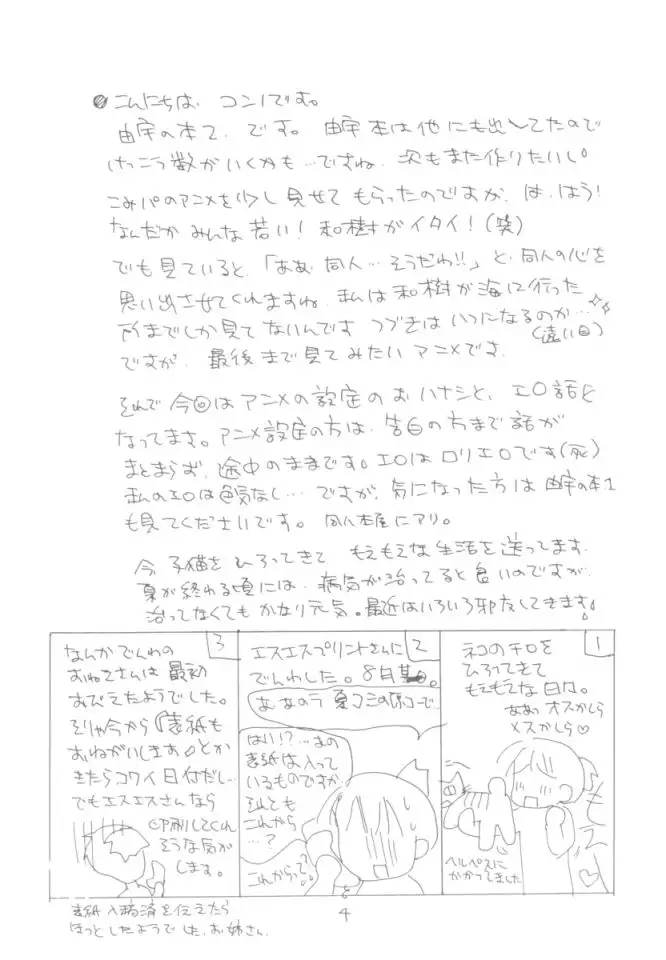 こんにちは、コンノです。
由宇の本2、です。由宇本は他にも出してたので
けっこう数がいくかも…ですね、次もまた作りたいし。
こみパのアニメを少し見せてもらったのですが、は、はう!
なんだかみんな若い!和樹がイタイ!(笑)
でも見ていると、「ああ、同人…そうだわ!!」と、同人の心を
思い出させてくれますね、私は和樹が海に行った
所までしか見てないんです つづきはいつになるのか…
(遠い目)
ですが、最後まで見てみたいアニメです。
それで今回はアニメの設定のおハナシと、エロ話と
なってます。アニメ設定の方は、告白の方まで話が
まとまらず、途中のままです。エロはロリエロです(死)
私のエロは色気なし…ですが、気になった方は由宇の本1
も見てくださいです。同人本屋にアリ。
今子猫をひろってきて もえもえな生活を送ってます、
夏が終れる頃には、病気が治ってると良いのですが
治ってなくてもかなり元気。最近はいろいろ邪友してきます!
1
ネコのチロを
ひろってきて
もえもえな日々。
ああっオスかしら
メスかしら♡
ヘルペスに
かかってました
2
エスエスプリントさんに
でんわした。8日。
あ、あのう 夏コミの原コーで、
はい!?…あの
表紙は入って
いるものですか
それとも
これから
…?
これからって?
3
なんかでんわの
おねえさんは最初
おびえたようでした。
そりゃ今から『表紙も
おねがいします』とか
きたらコワイ日付だし…
でもエスエスさんなら
印刷してくれ
そうな気が
します。
表紙入稿済を伝えたら
ほっとしたようでした、お姉さん。
4